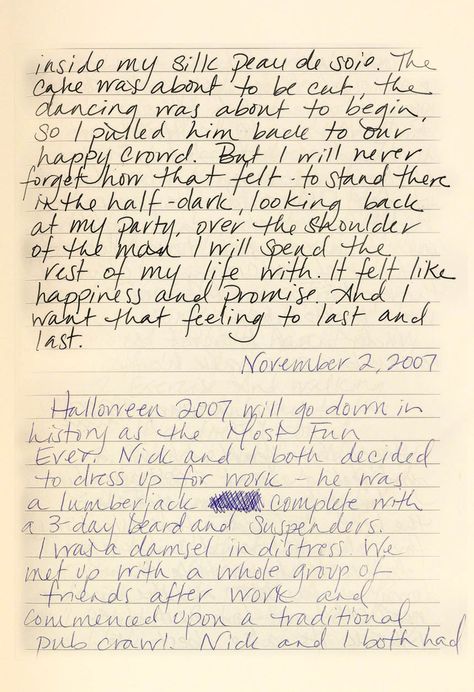 inside my silk peau de soie. The
cake was about to be cut, the
dancing was about to begin,
so I pulled him back to our
happy crowd. But I will never
forget how that felt - to stand there
in the half-dark, looking back
at my party, over the shoulder
of the man I will spend the
rest of my life with. It felt like
happiness and promise. And I
want that feeling to last and
last.
November 2, 2007
Halloween 2007 will go down in
history as the Most Fun
Ever. Nick and I both decided
to dress up for work - he was
a lumberjack complete with
a 3-day beard and suspenders.
I was a damsel in distress. We
met up with a whole group of
friends after work and
commenced upon a traditional
pub crawl. Nick and I both had